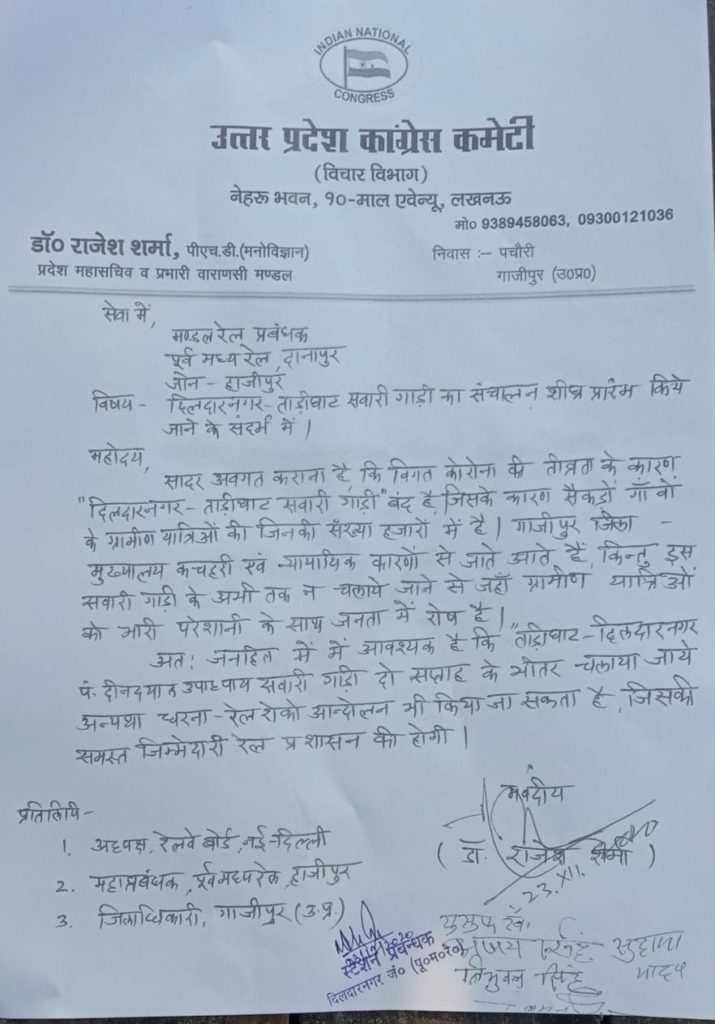 INDIAN NATIONAL
CONGRESS
उत्तर प्रदेश कांग्रेस कमेटी
(विचार विभाग)
नेहरू भवन, १०-माल एवेन्यू, लखनऊ
मो० 9389458063, 09300121036
डॉ० राजेश शर्मा, पीएच.डी.(मनोविज्ञान)
प्रदेश महासचिव व प्रभारी वाराणसी मण्डल
निवास :- पचौरी
गाजीपुर (उ०प्र०)
सेवा में,
मण्डल रेल प्रबंधक
पूर्व मध्य रेल, दानापुर
जोन - हाजीपुर
विषय - दिलदारनगर - ताड़ीघाट सवारी गाड़ी का संचालन शीघ्र प्रारंम किये
जाने के संदर्भ में |
महोदय,
सादर अवगत कराना है कि विगत कोरोना की तीव्रता के कारण
"दिलदारनगर - ताड़ीघाट सवारी गाड़ी" बंद है, जिसके कारण सैकड़ों गाँवों
के ग्रामीण यात्रिओं की जिनकी सँख्या हजारों में है | गाजीपुर जिला -
मुख्यालय कचहरी एवं न्यायायिक कारणों से जाते आते हैं, किन्तु इस
सवारी गाड़ी के अभी तक न चलाये जाने से जहाँ ग्रामीण यात्रिओं
को भारी परेशानी के साथ जनता में रोष है |
अतः जनहित में में आवश्यक है कि "ताड़ीघाट - दिलदारनगर
पं. दीनदयाल उपाध्याय सवारी गाड़ी दो सप्ताह के भीतर चलाया जाये
अन्यथा धरना - रेल रोको आन्दोलन भी किया जा सकता है, जिसकी
समस्त जिम्मेदारी रेल प्रशासन की होगी |
भवदीय
(डॉ. राजेश शर्मा)
23.XII.
प्रतिलिपि -
1. अध्यक्ष, रेलवे बोर्ड, नई-दिल्ली
2. महाप्रबंधक, पूर्व मध्य रेल, हाजीपुर
3. जिलाधिकारी, गाजीपुर (उ.प्र.)
स्टेशन प्रबन्धक
दिलदारनगर जं० (पू०म०रे०)
सिंह सुदामा
यादव
त्रिभुवन सिंह